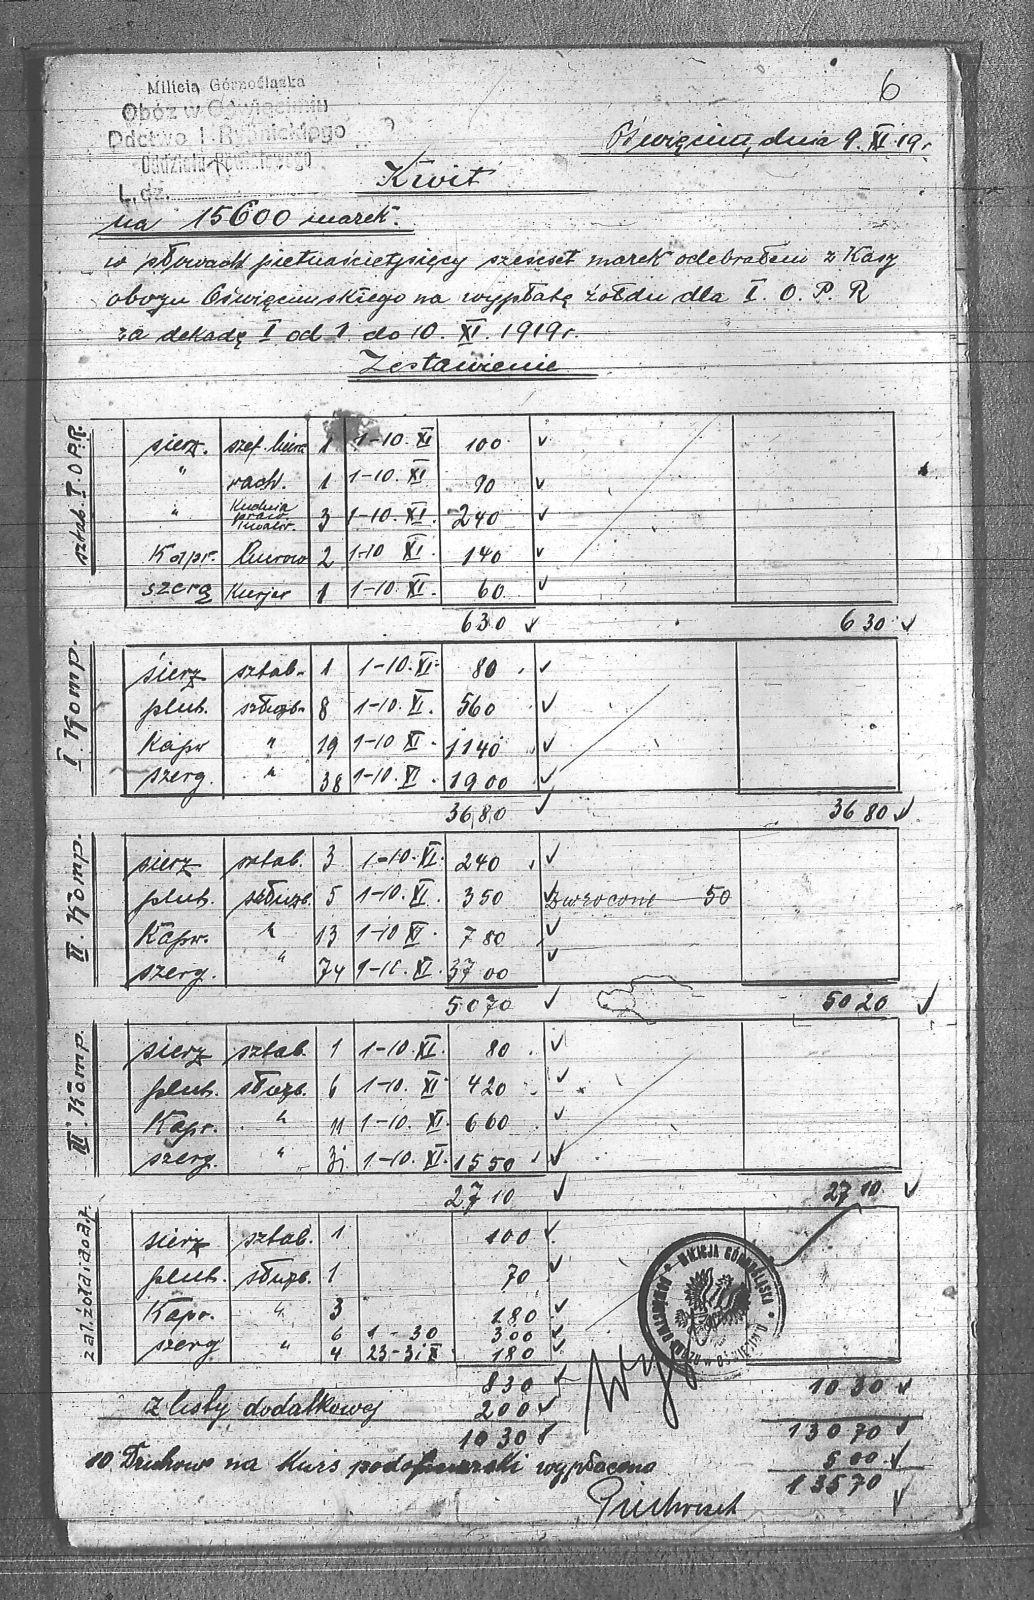 6
Milicja Górnośląska
Obóz w Oświęcimiu
Ddctwo I. Rybnickiego
Oddziału Powiatowego
L. dz.
Oświęcim, dnia 9. XI 19 r.
Kwit
na 15600 marek.
w słowach pietnaścietysięcy sześcset marek odebrałem z Kasy
obozu Oświęcimskiego na wypłatę żołdu dla I. O. P. R
za dekadę I od 1 do 10. XI. 1919 r.
Zestawienie
sztab. I. O P.R.
sierż. szef. biura 1 1-10. XI 100
" rach. 1 1-10. XI 90
" Kuchnia prow. 3 1-10. XI. 240
Kapr. biurow 2 1-10 XI. 140
szerg Kurjer 1 1-10. XI. 60.
630 630
I. Komp.
sierż sztab. 1 1-10. XI. 80
plut. służb. 8 1-10. XI. 560
Kapr " 19 1-10 XI. 1140
szerg. " 38 1-10. XI 1900
3680 3680
II. Komp.
sierż sztab. 3 1-10. XI. 240
plut. służb. 5 1-10. XI. 350 zwrócone 50
Kapr. " 13 1-10 XI. 780
szerg. " 74 1-10. XI. 3700
5070 5020
III. Komp.
sierż sztab. 1 1-10. XI. 80
plut. służb. 6 1-10. XI. 420
Kapr. " 11 1-10. XI. 660
szerg. " 31 1-10. XI. 1550
2710 2710
zal. żołd i dod.
sierż sztab. 1 100
plut. służb. 1 70
Kapr. " 3 180
szerg " 6 1-30 300
4 23-31 X 180
MILICJA GÓRNOŚLĄSKA
830 1030
z listy dodatkowej 200
1030 13070
10 Druhów na Kurs podoficerski wypłacono 500
13570